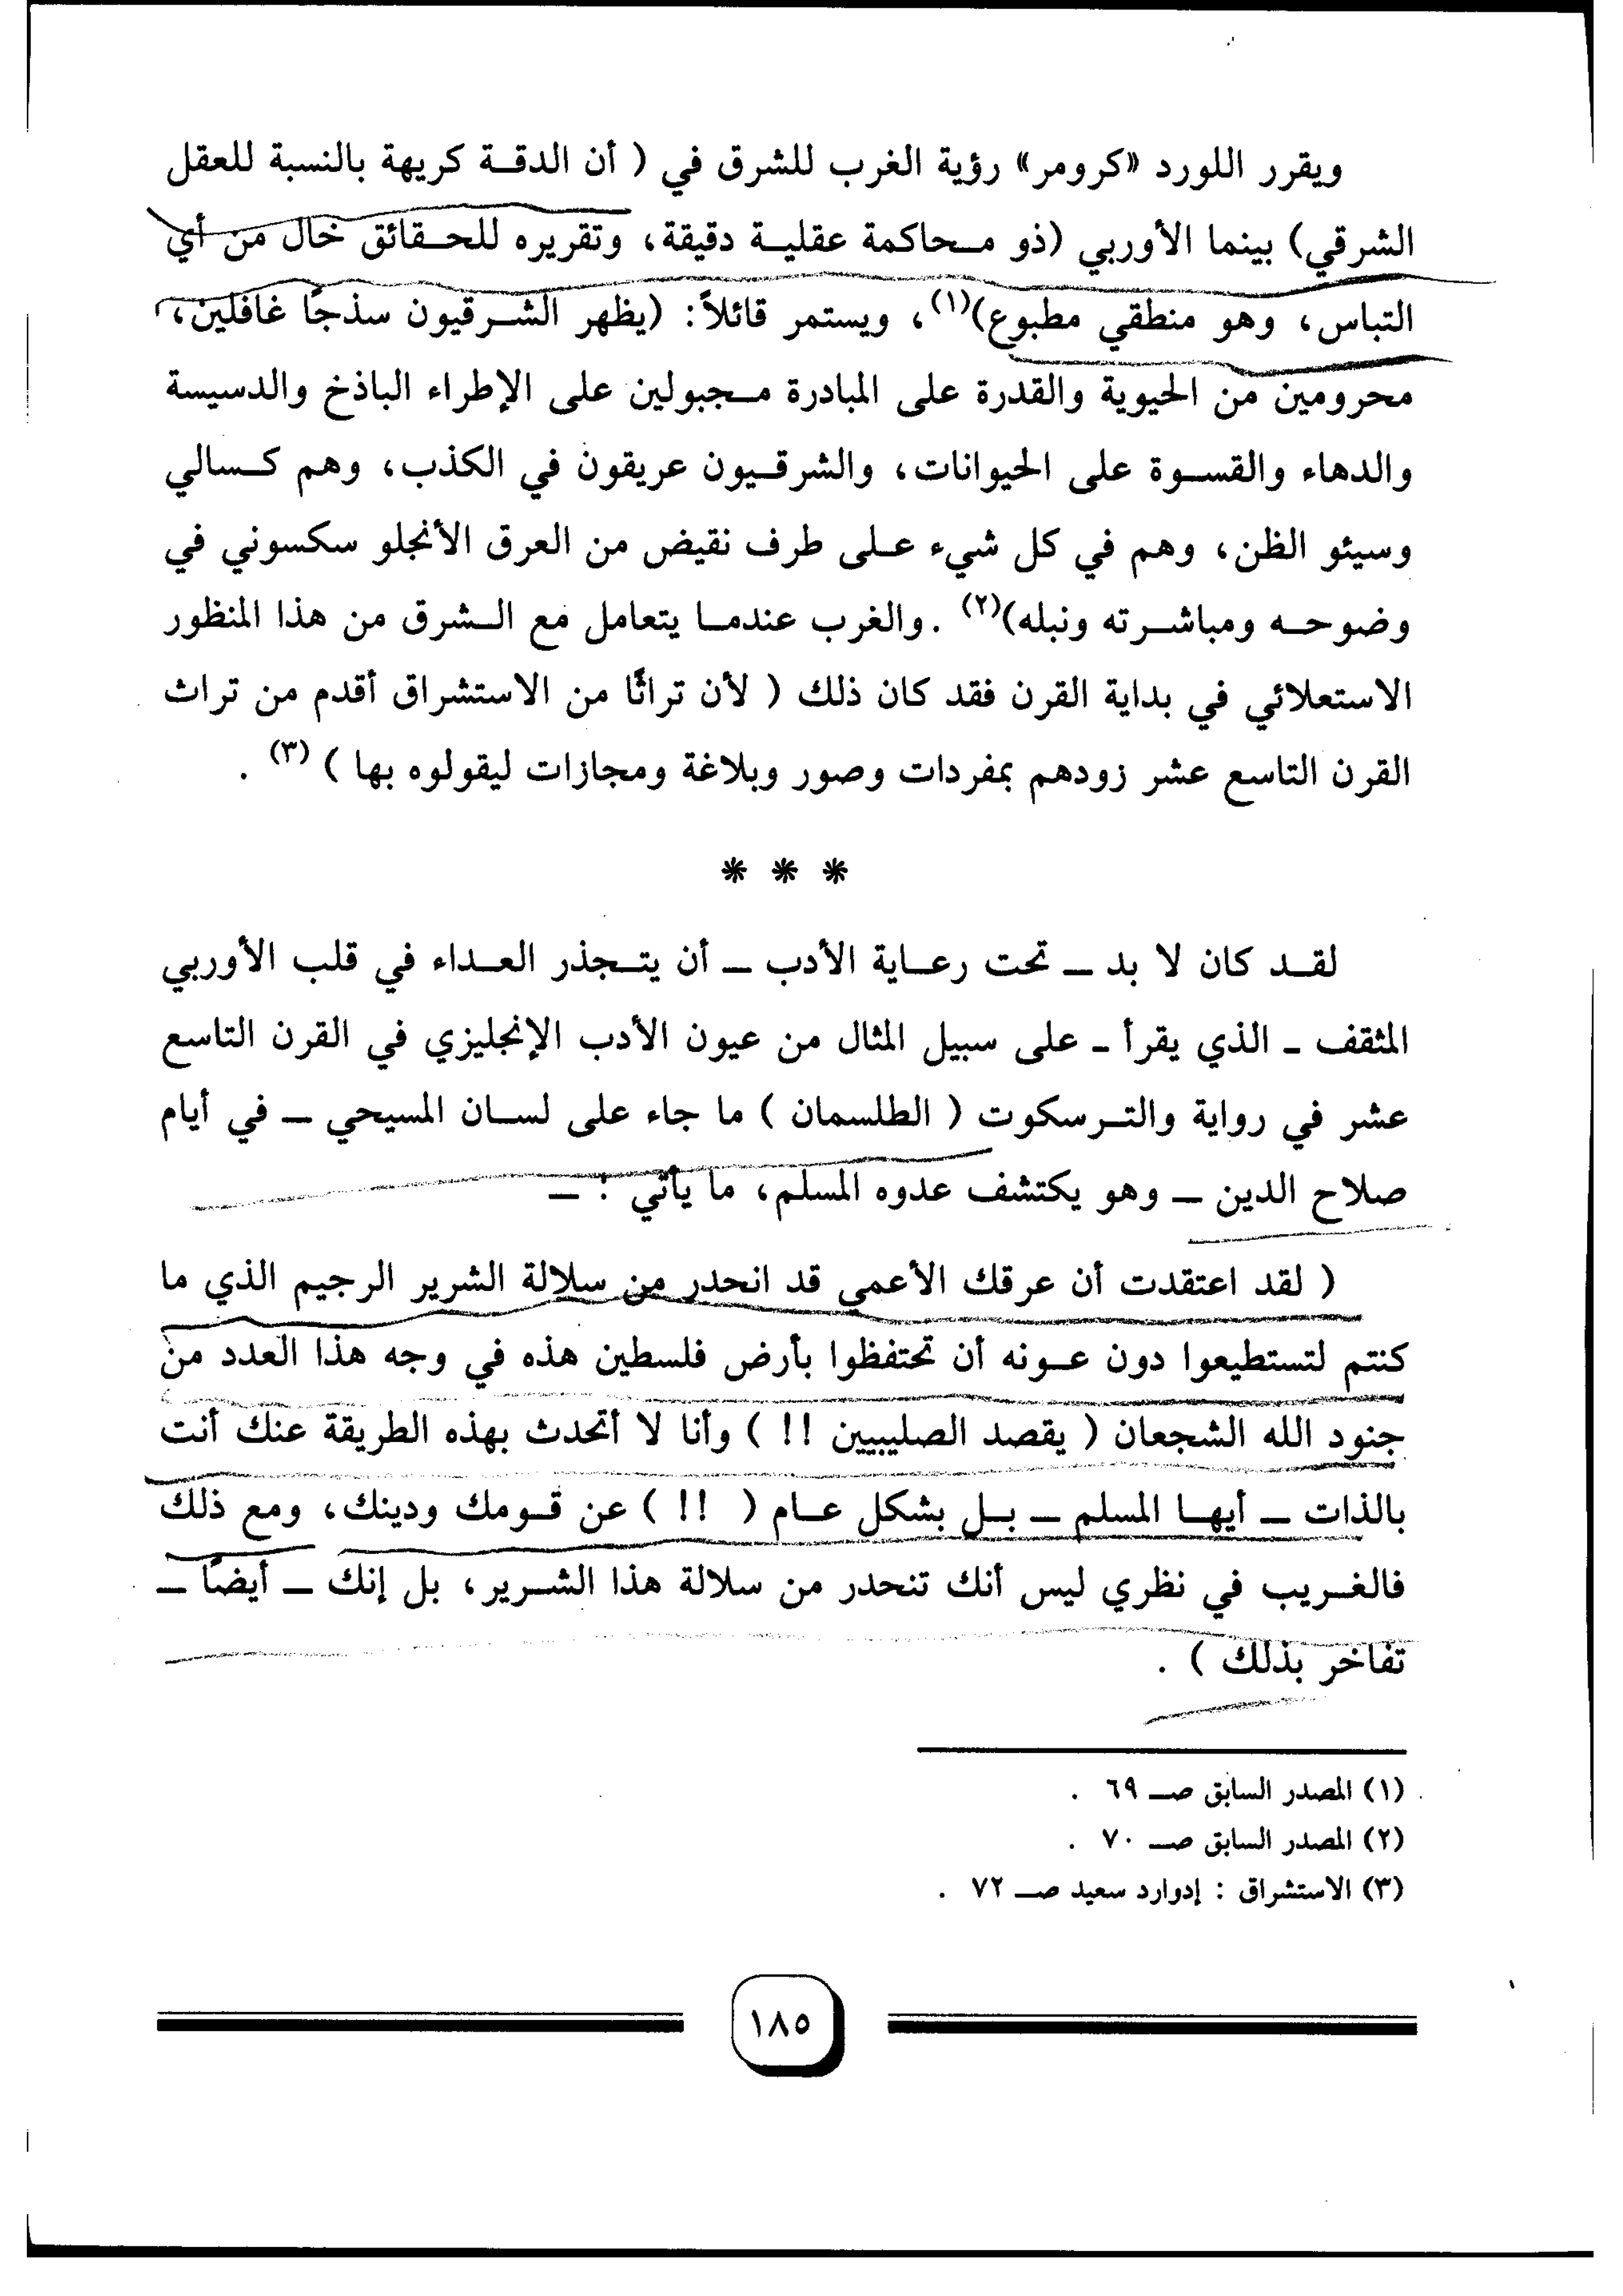 ويقرر اللورد «كرومر» رؤية الغرب للشرق في ( أن الدقة كريهة بالنسبة للعقل
الشرقي) بينما الأوربي (ذو محاكمة عقلية دقيقة، وتقريره للحقائق خال من أي
التباس، وهو منطقي مطبوع)(١)، ويستمر قائلاً: (يظهر الشرقيون سذجًا غافلين،
محرومين من الحيوية والقدرة على المبادرة مجبولين على الإطراء الباذخ والدسيسة
والدهاء والقسوة على الحيوانات، والشرقيون عريقون في الكذب، وهم كسالي
وسيئو الظن، وهم في كل شيء على طرف نقيض من العرق الأنجلو سكسوني في
وضوحه ومباشرته ونبله)(٢) . والغرب عندما يتعامل مع الشرق من هذا المنظور
الاستعلائي في بداية القرن فقد كان ذلك ( لأن تراثًا من الاستشراق أقدم من تراث
القرن التاسع عشر زودهم بمفردات وصور وبلاغة ومجازات ليقولوه بها ) (٣) .
* * *
لقد كان لا بد ــ تحت رعاية الأدب ــ أن يتجذر العداء في قلب الأوربي
المثقف ـ الذي يقرأ ـ على سبيل المثال من عيون الأدب الإنجليزي في القرن التاسع
عشر في رواية والترسكوت ( الطلسمان ) ما جاء على لسان المسيحي ــ في أيام
صلاح الدين ــ وهو يكتشف عدوه المسلم، ما يأتي : ــ
( لقد اعتقدت أن عرقك الأعمى قد انحدر من سلالة الشرير الرجيم الذي ما
كنتم لتستطيعوا دون عونه أن تحتفظوا بأرض فلسطين هذه في وجه هذا العدد من
جنود الله الشجعان ( يقصد الصليبيين !! ) وأنا لا أتحدث بهذه الطريقة عنك أنت
بالذات ــ أيها المسلم ــ بل بشكل عام ( !! ) عن قومك ودينك، ومع ذلك
فالغريب في نظري ليس أنك تنحدر من سلالة هذا الشرير، بل إنك ــ أيضًا ــ
تفاخر بذلك ) .
(١) المصدر السابق صـ ٦٩ .
(٢) المصدر السابق صـ ٧٠ .
(٣) الاستشراق : إدوارد سعيد صـ ٧٢ .
١٨٥